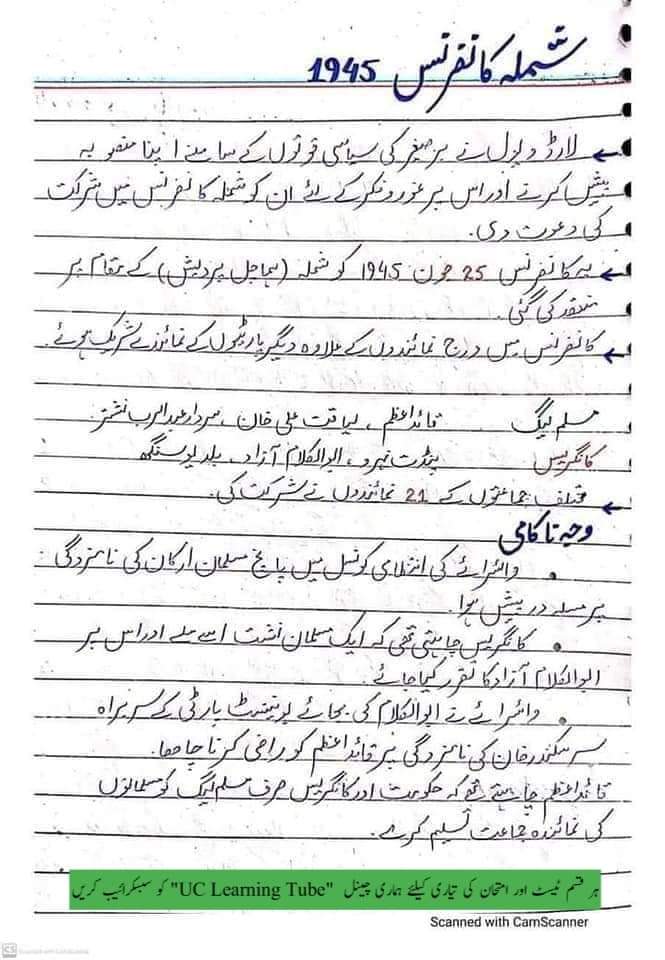 شملہ کانفرنس 1945
← لارڈ ویول نے برصغیر کی سیاسی قوتوں کے سامنے اپنا منصوبہ
پیش کرنے اور اس پر غور و فکر کے لئے ان کو شملہ کانفرنس میں شرکت
کی دعوت دی۔
← یہ کانفرنس 25 جون 1945 کو شملہ (ہماچل پردیش) کے مقام پر
منعقد کی گئی۔
← کانفرنس میں درج نمائندوں کے علاوہ دیگر پارٹیوں کے نمائندے شریک ہوئے۔
مسلم لیگ قائداعظم، لیاقت علی خان، سردار عبدالرب نشتر
کانگریس پنڈت نہرو، ابوالکلام آزاد، بلدیو سنگھ
← مختلف جماعتوں کے 21 نمائندوں نے شرکت کی۔
وجہ ناکامی
• وائسرائے کی انتظامی کونسل میں پانچ مسلمان ارکان کی نامزدگی
پر مسئلہ درپیش ہوا۔
• کانگریس چاہتی تھی کہ ایک مسلمان نشست اسے ملے اور اس پر
ابوالکلام آزاد کا تقرر کیا جائے۔
• وائسرائے نے ابوالکلام کی بجائے یونینسٹ پارٹی کے سربراہ
سر سکندر خان کی نامزدگی پر قائداعظم کو راضی کرنا چاہا۔
قائداعظم چاہتے تھے کہ حکومت اور کانگریس صرف مسلم لیگ کو مسلمانوں
کی نمائندہ جماعت تسلیم کرے۔
ہر قسم ٹیسٹ اور امتحان کی تیاری کیلئے ہماری چینل "UC Learning Tube" کو سبسکرائیب کریں
Scanned with CamScanner
CS Scanned with CamScanner